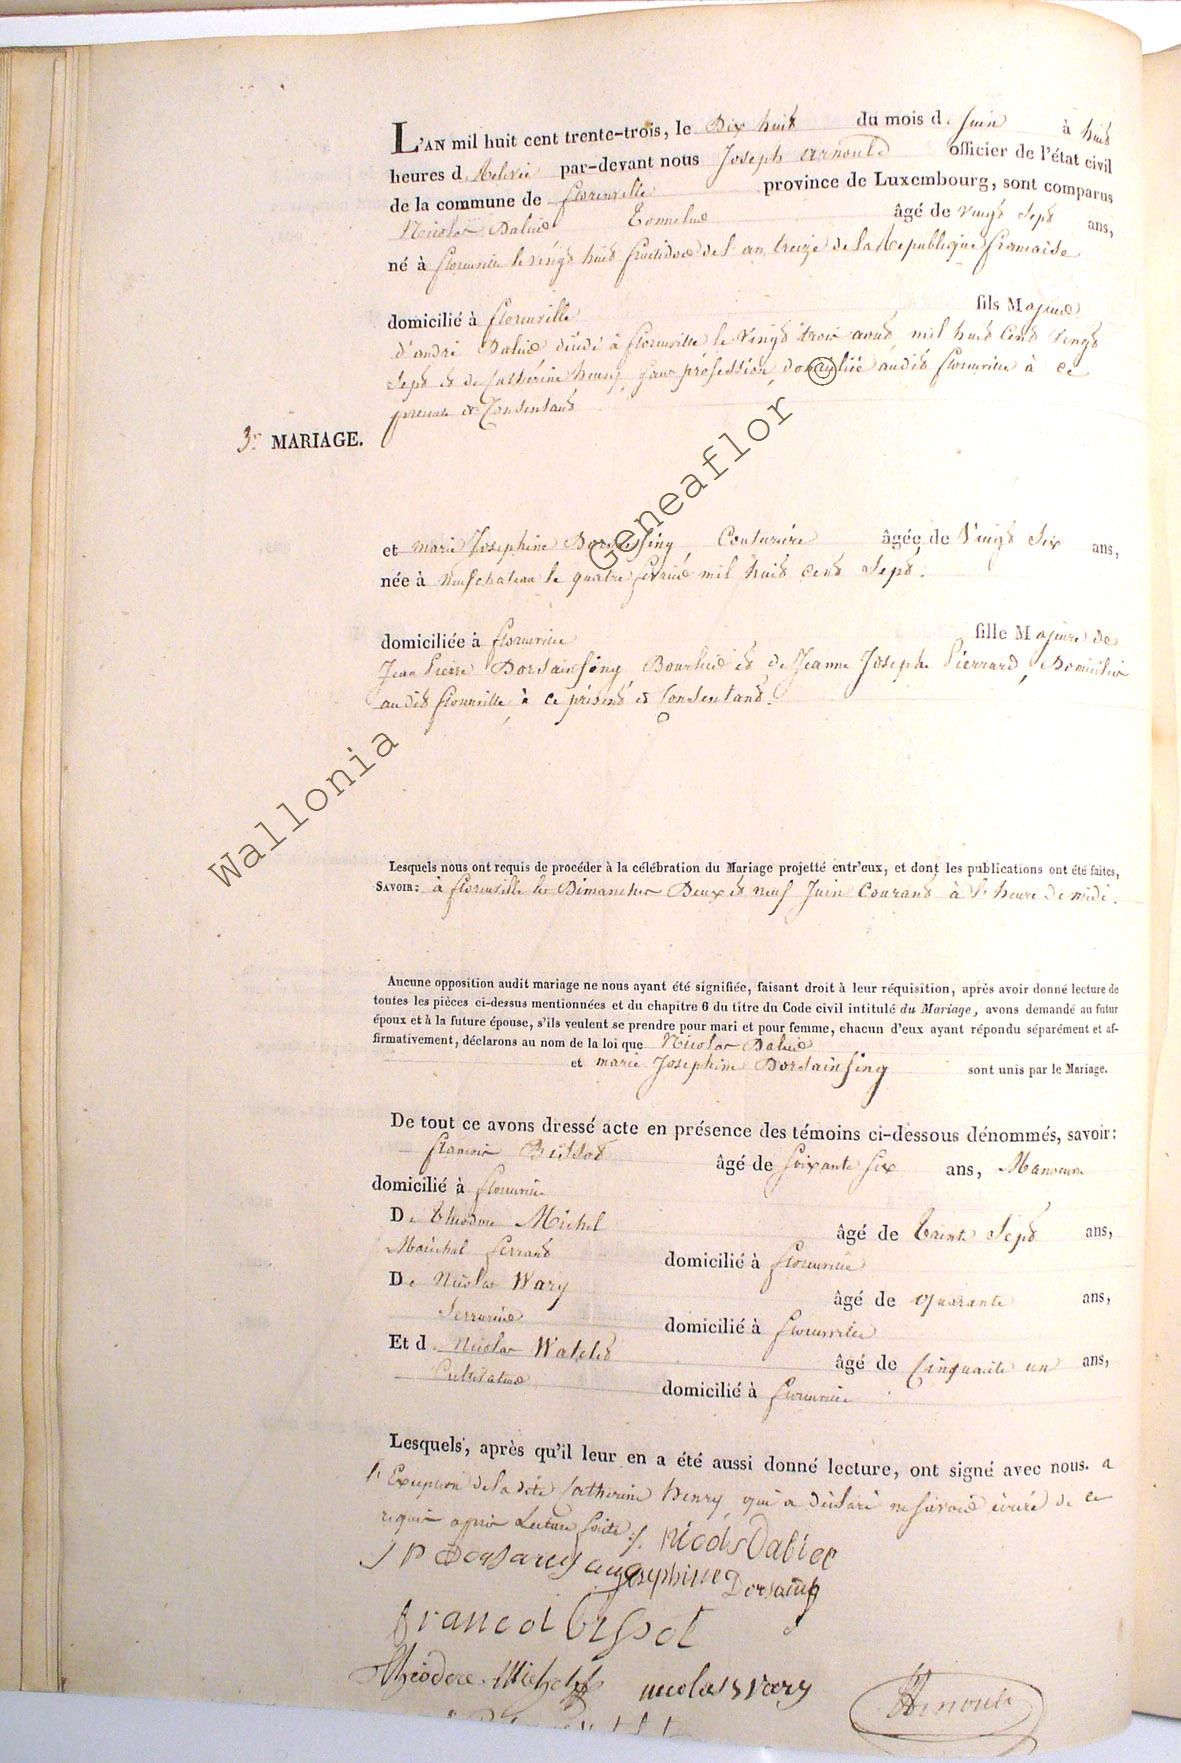 L'AN mil huit cent trente-trois, le Dix huit du mois de Juin à huit
heures d par-devant nous Joseph Arnould officier de l'état civil
de la commune de florenville province de Luxembourg, sont comparus
Nicolas Tonnelier âgé de vingt sept ans,
né à florenville le vingt huit fructidor de l'an treize de la République française
domicilié à florenville fils Majeur
d'andré décédé à florenville le vingt trois aout mil huit cent vingt
sept et de Catherine henry, sans profession, domiciliée audit florenville à ce
présente et Consentant
3e MARIAGE.
et marie Josephine Couturière âgée de Vingt Six ans,
née à neufchateau le quatre fevrier mil huit cent Sept.
domiciliée à florenville fille Majeure de
Jean Pierre Dorsainfing et de Jeanne Josephe Pierrard, Domiciliés
audit florenville, à ce présents et Consentants.
Lesquels nous ont requis de procéder à la célébration du Mariage projetté entr'eux, et dont les publications ont été faites,
SAVOIR: à florenville les Dimanches Deux et neuf Juin Courant à l'heure de midi.
Aucune opposition audit mariage ne nous ayant été signifiée, faisant droit à leur réquisition, après avoir donné lecture de
toutes les pièces ci-dessus mentionnées et du chapitre 6 du titre du Code civil intitulé du Mariage, avons demandé au futur
époux et à la future épouse, s'ils veulent se prendre pour mari et pour femme, chacun d'eux ayant répondu séparément et af-
firmativement, déclarons au nom de la loi que Nicolas
et marie Josephine Dorsainfing sont unis par le Mariage.
De tout ce avons dressé acte en présence des témoins ci-dessous dénommés, savoir:
françois âgé de Soixante six ans, Manoeuvre
domicilié à florenville
De théodore Michel âgé de trente Sept ans,
Maréchal ferrant domicilié à florenville
De Nicolas Wary âgé de quarante ans,
Serrurier domicilié à florenville
Et d Nicolas âgé de Cinquante un ans,
Cultivateur domicilié à florenville
Lesquels, après qu'il leur en a été aussi donné lecture, ont signé avec nous. a
l'Exception de la dite Catherine henry, qui a déclaré ne savoir écrire de ce
requise après Lecture faite
J P
Josephine Dorsainfing
Theodore Michel nicolas Wary Arnould
Wallonia Geneaflor ©